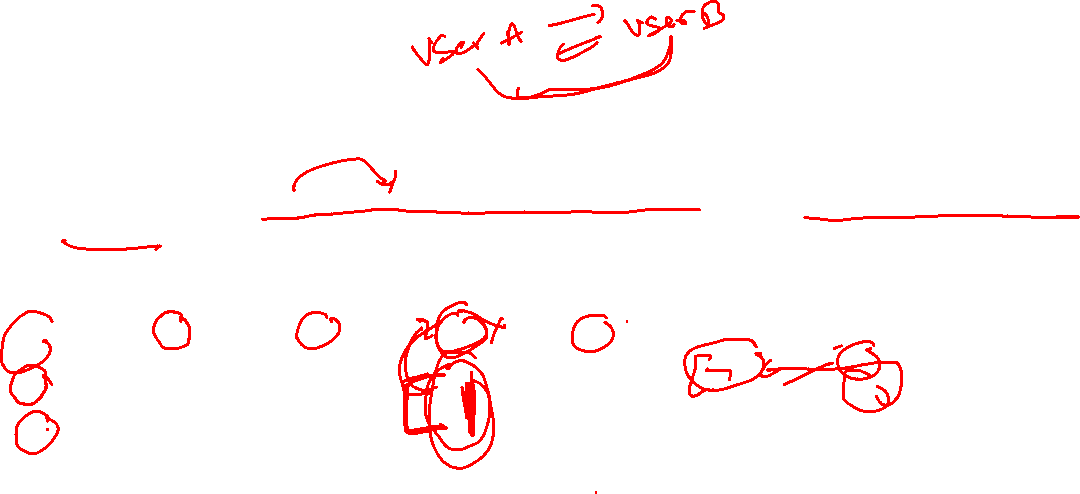 User A ⇌ User B